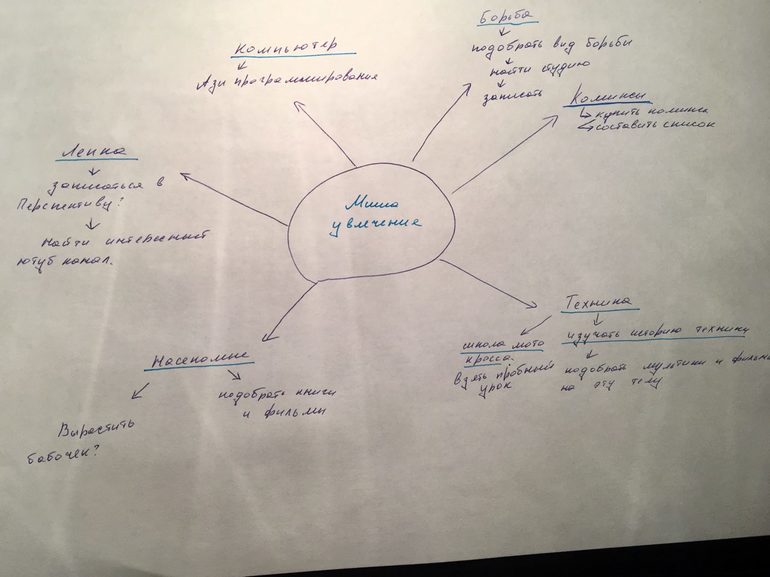 Борьба
подобрать вид борьбы
найти студию
записать
Компьютер
Ази программирования
Комиксы
купить комикс
составить список
Лепка
записаться в
Перспективу?
найти интересный
ютуб канал.
Миша
увлечение
Техника
школа мото
кросса.
взять пробный
урок
изучать историю техники
подобрать мультики и фильмы
на эту тему
Насекомые
подобрать книги
и фильмы
Вырастить
бабочек?